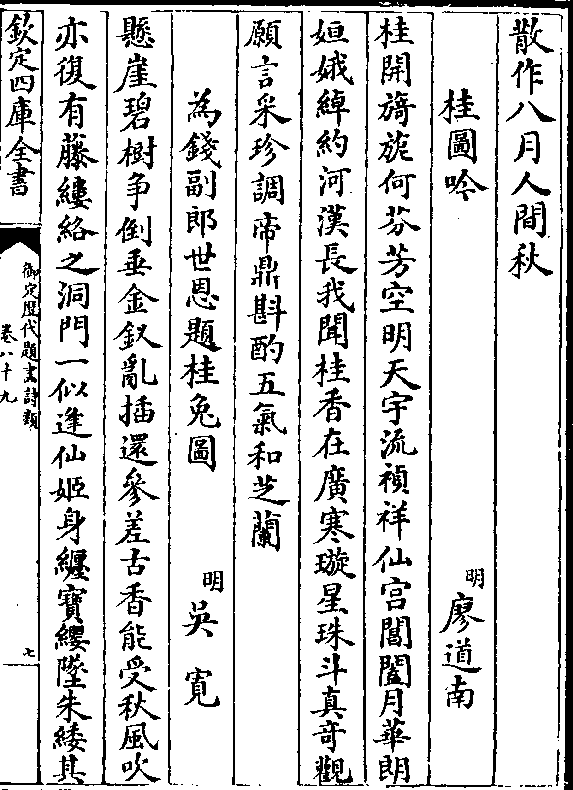 散作八月人間秋
桂圖吟
明 廖道南
桂開旖旎何芬芳空明天宇流禎祥仙宮閶闔月華朗
姮娥綽約河漢長我聞桂香在廣寒璇星珠斗真奇觀
願言采珍調帝鼎斟酌五氣和芝蘭
為錢副郎世恩題桂兔圖
明 吳寬
懸崖碧樹爭倒垂金釵亂插還參差古香能受秋風吹
亦復有藤縷絡之洞門一似逢仙姬身纏寶纓墜朱緌其
欽定四庫全書
御定歷代題畫詩類
卷八十九
七